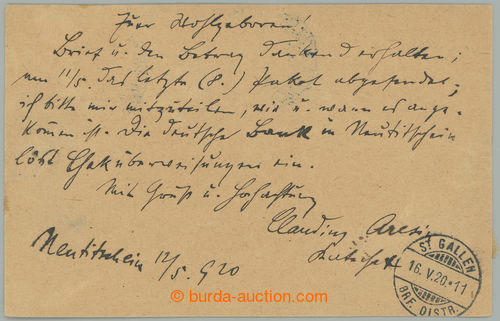 Euer Wohlgeboren!
Brief u. den Betrag dankend erhalten;
am 11/5. das letzte (8.) Paket abgesendet,
ich bitte mir mitzuteilen, wie u. wann es ange-
kommen ist. Die deutsche Bank in Neutitschein
löst Cheküberweisungen ein.
Mit Gruß u. Hochachtung
Claudius
Neutitschein 12/5. 920
ST. GALLEN
16. V. 20. 11
BRF. DISTR.
© burda-auction.com